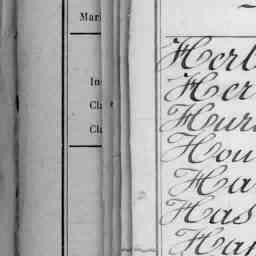 Mar
In
Cla
Cla
Herl
Her
Hur
Hou
Ha
Has
Han